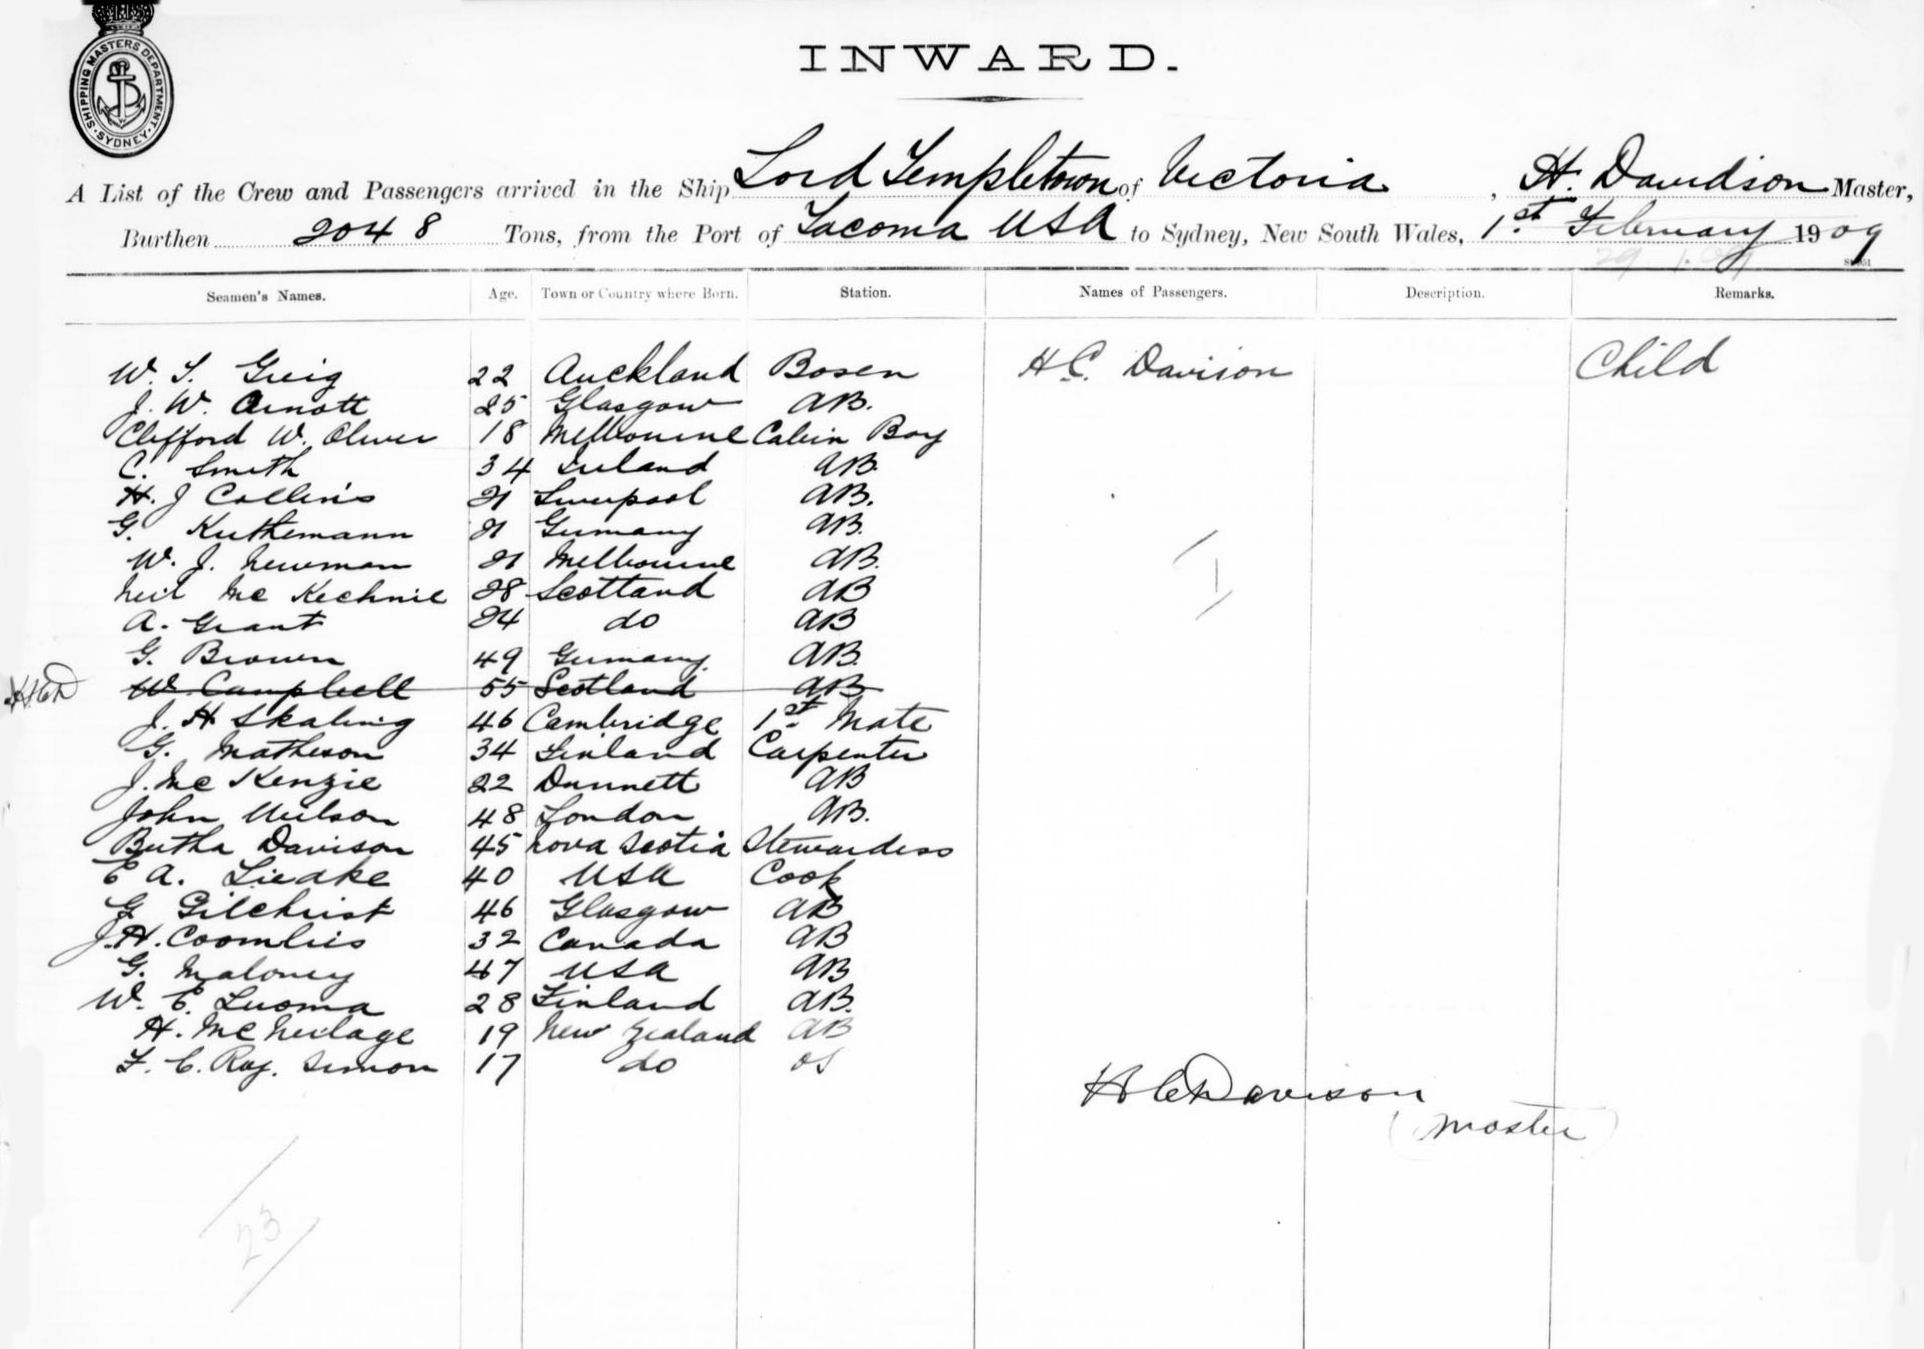 SHIPPING MASTERS DEPARTMENT · SYDNEY ·
INWARD.
A List of the Crew and Passengers arrived in the Ship Lord Templetown of Victoria, H. Davidson Master,
Burthen 2048 Tons, from the Port of Tacoma USA to Sydney, New South Wales, 1st February 1909
29 1. 09
Seamen's Names. Age. Town or Country where Born. Station. Names of Passengers. Description. Remarks.
W. S. Greig 22 Auckland Bosen H.C. Davison Child
J. W. Arnott 25 Glasgow AB.
Clifford W. Oliver 18 Melbourne Cabin Boy
C. Smith 34 Ireland AB.
H. J Collins 21 Liverpool AB.
G. Kuthemann 21 Germany AB.
W. J. Newman 21 Melbourne AB.
Neil McKechnie 28 Scotland AB
A. Grant 24 do AB
G. Brown 49 Germany AB.
HCD W. Campbell 55 Scotland AB
J. H Skaling 46 Cambridge 1st Mate
G. Matheson 34 Finland Carpenter
J. McKenzie 22 Dunnett AB
John Wilson 48 London AB.
Bertha Davison 45 Nova Scotia Stewardess
E A. Liedke 40 USA Cook
G Gilchrist 46 Glasgow AB
J. H. Coombes 32 Canada AB
G. Maloney 47 USA AB
W. E. Luoma 28 Finland AB.
H. McNeilage 19 New Zealand AB
F. C. Ray. Simon 17 do OS
I
H C Davison
(Master)
23